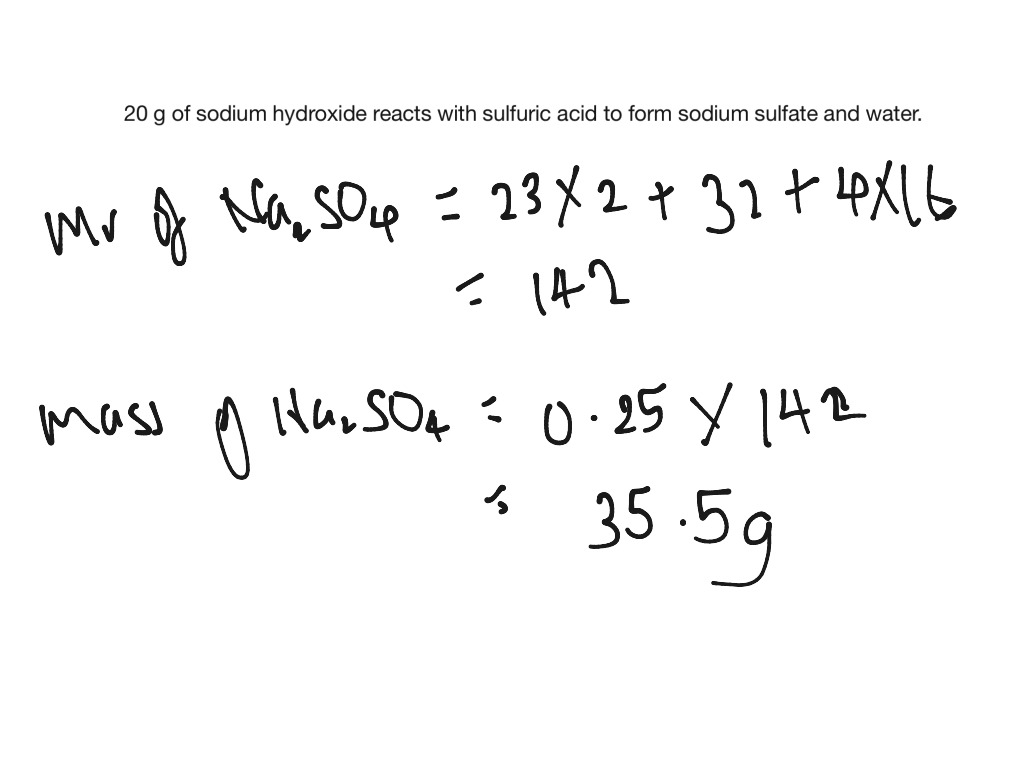 20 g of sodium hydroxide reacts with sulfuric acid to form sodium sulfate and water.
Mr of Na₂SO₄ = 23 × 2 + 32 + 4×16
= 142
mass of Na₂SO₄ = 0.25 × 142
= 35.5g